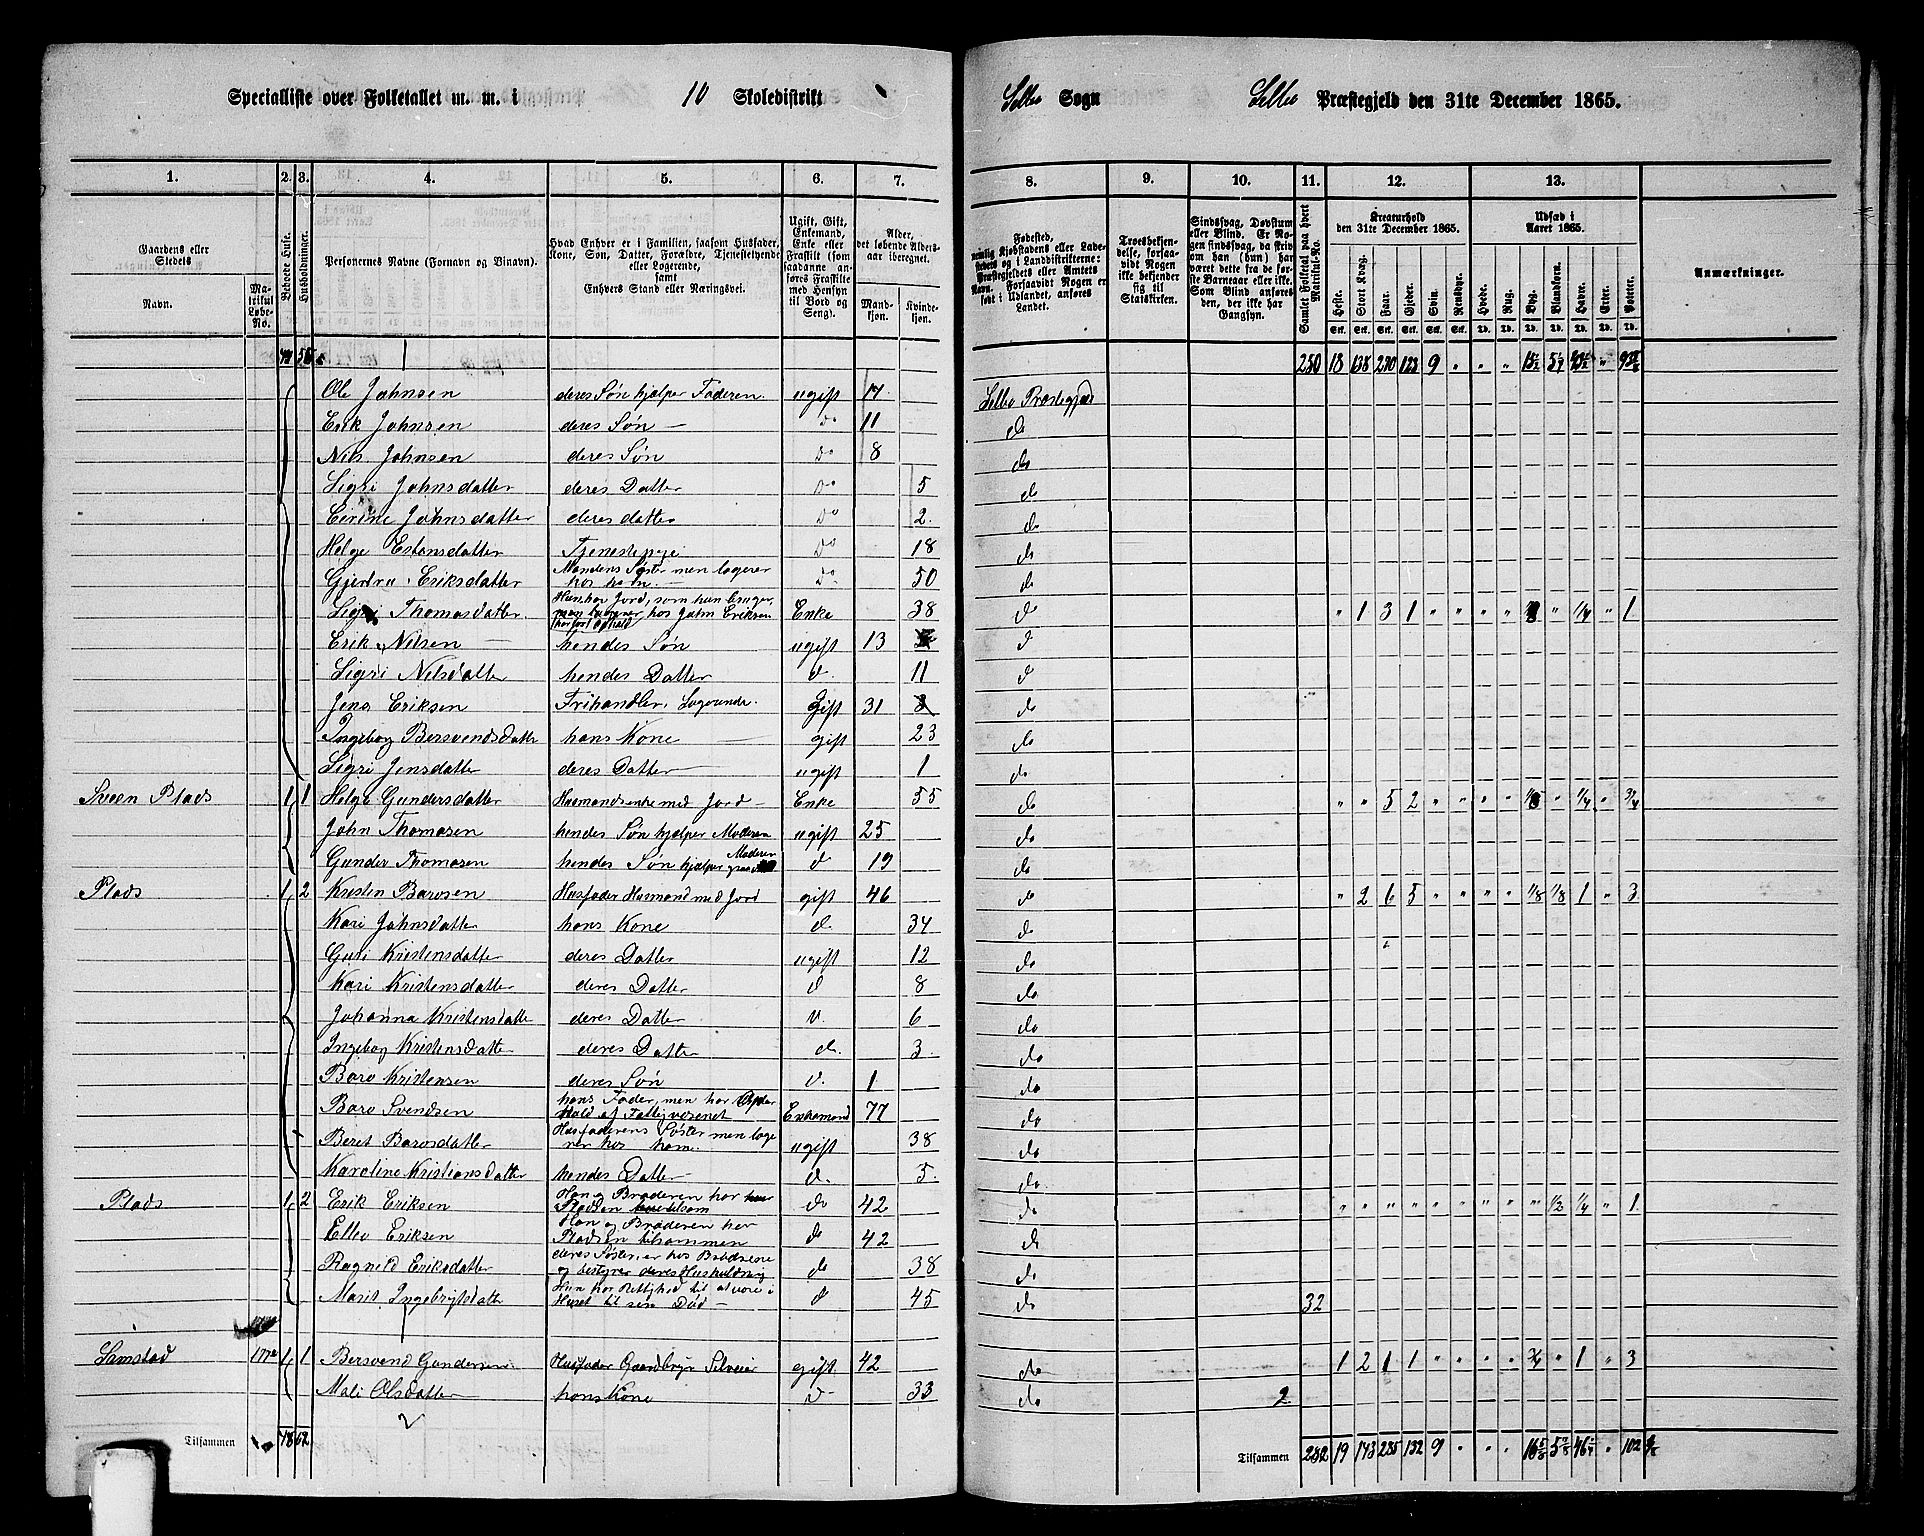 Specialliste over Folketallet m. m. i 10 Skoledistrikt
Selbu Sogn Selbu Præstegjeld den 31te December 1865.
1. 2. 3. 4. 5. 6. 7. 8. 9. 10. 11. 12. 13.
Gaardens eller Stedets
Navn.
Matrikul Løbe-No.
Beboede Huse.
Husholdninger.
Personernes Navne (Fornavn og Binavn).
Hvad Enhver er i Familien, saasom Husfader, Kone, Søn, Datter, Forældre, Tjenestetyende eller Logerende, samt Enhvers Stand eller Næringsvei.
Ugift, Gift, Enkemand, Enke eller Fraskilt (som saadanne anføres Fraskilte med Hensyn til Bord og Seng).
Alder, det løbende Aldersaar iberegnet.
Mandkjøn. Kvindekjøn.
Fødested, nemlig Kjøbstadens eller Ladestedets og i Landdistrikterne: Præstegjeldets eller Amtets Navn. Forsaavidt Nogen er født i Udlandet, anføres Landet.
Troesbekjendelse, forsaavidt Nogen ikke bekjender sig til Statskirken.
Sindssvag, Døvstum eller Blind. Er Nogen sindssvag, da skrives om han (hun) har været dette fra de første Barneaar eller ikke. Som Blind anføres den, der ikke har Gangsyn.
Samlet Folketal paa hvert Matrikul-No.
Kreaturhold den 31te December 1865.
Heste. Stort Kvæg. Faar. Gjeder. Svin. Rensdyr.
Udsæd i Aaret 1865.
Hvede. Rug. Byg. Blandkorn. Havre. Erter. Poteter.
Anmærkninger.
250 18 138 270 123 9 " " "
Ole Johnsen deres Søn hjælper Faderen ugift 17 Selbu Præstegjeld
Erik Johnsen deres Søn — Do 11 do
Nils Johnsen deres Søn Do 8 do
Sigri Johnsdatter deres Datter Do 5 do
Cirine Johnsdatter deres datter Do 2 do
Helge Estensdatter Tjenestepige Do 18 do
Gjertru Eriksdatter Mandens Søster men logerer hos ham — Do 50 do
Sigri Thomasdatter Hun har Jord, som hun bruger, men logerer hos John Eriksen Enke 38 do " 1 3 1 " " " " " 1/4 " 1
Erik Nilsen — hendes Søn ugift 13 d
Sigri Nilsdatter hendes Datter d. 11 d
Jens Eriksen Frihandler, Logerende. Gift 31 do
Ingebog Bersvendsdatter hans Kone gift 23 do
Sigri Jensdatter deres Datter ugift 1 do
Sveen Plads 1 1 Helge Gundersdatter Husmandsenke med Jord — Enke 55 do " " 5 2 " " " " " 1/4 " 3/4
John Thomasen hendes Søn hjælper Moderen ugift 25 do
Gunder Thomasen hendes Søn hjælper Moderen d 19 do
Plads 1 2 Kristen Barosen Husfader Husmand med Jord gift 46 do " 2 6 5 " " " " 1/8 1/8 1 " 3
Kari Johnsdatter hans Kone d. 34 do
Guri Kristensdatter deres Datter ugift 12 do
Kari Kristensdatter deres Datter d 8 do
Johanna Kristensdatter deres Datter d. 6 do
Ingebog Kristensdatter deres Datter d. 3. do
Baro Kristensen deres Søn d. 1 do
Baro Svendsen hans Fader, men har Ophold af Fattigvesenet Enkemand 77 do
Beret Barosdatter Husfaderens Søster men logerer hos ham. ugift 38 do
Karoline Kristiansdatter hendes Datter d. 5. do
Plads 1 2 Erik Eriksen Han og Broderen har Pladsen tilsam do 42 do " " " " " " " " " 1/2 1/4 " 1
Ellev Eriksen Han og Broderen har Pladsen tilsammen d 42 do
Ragnild Eriksdatter deres Søster, er hos Brødrene og bestyrer deres Husholdning do 38 do
Marit Ingebrigtsdatter Hun har Rettighed til at være i Huset til sin Død — d 45 do 32
Samstad 177a 1 1 Bersvend Gundersen Husfader Gaardbruger Selveier gift 42 do 1 2 1 1 " " " " " 1 " 3
Mali Olsdatter hans Kone d 33 do 2
Tilsammen 48 62
Tilsammen 282 19 143 285 132 9 " " " 102